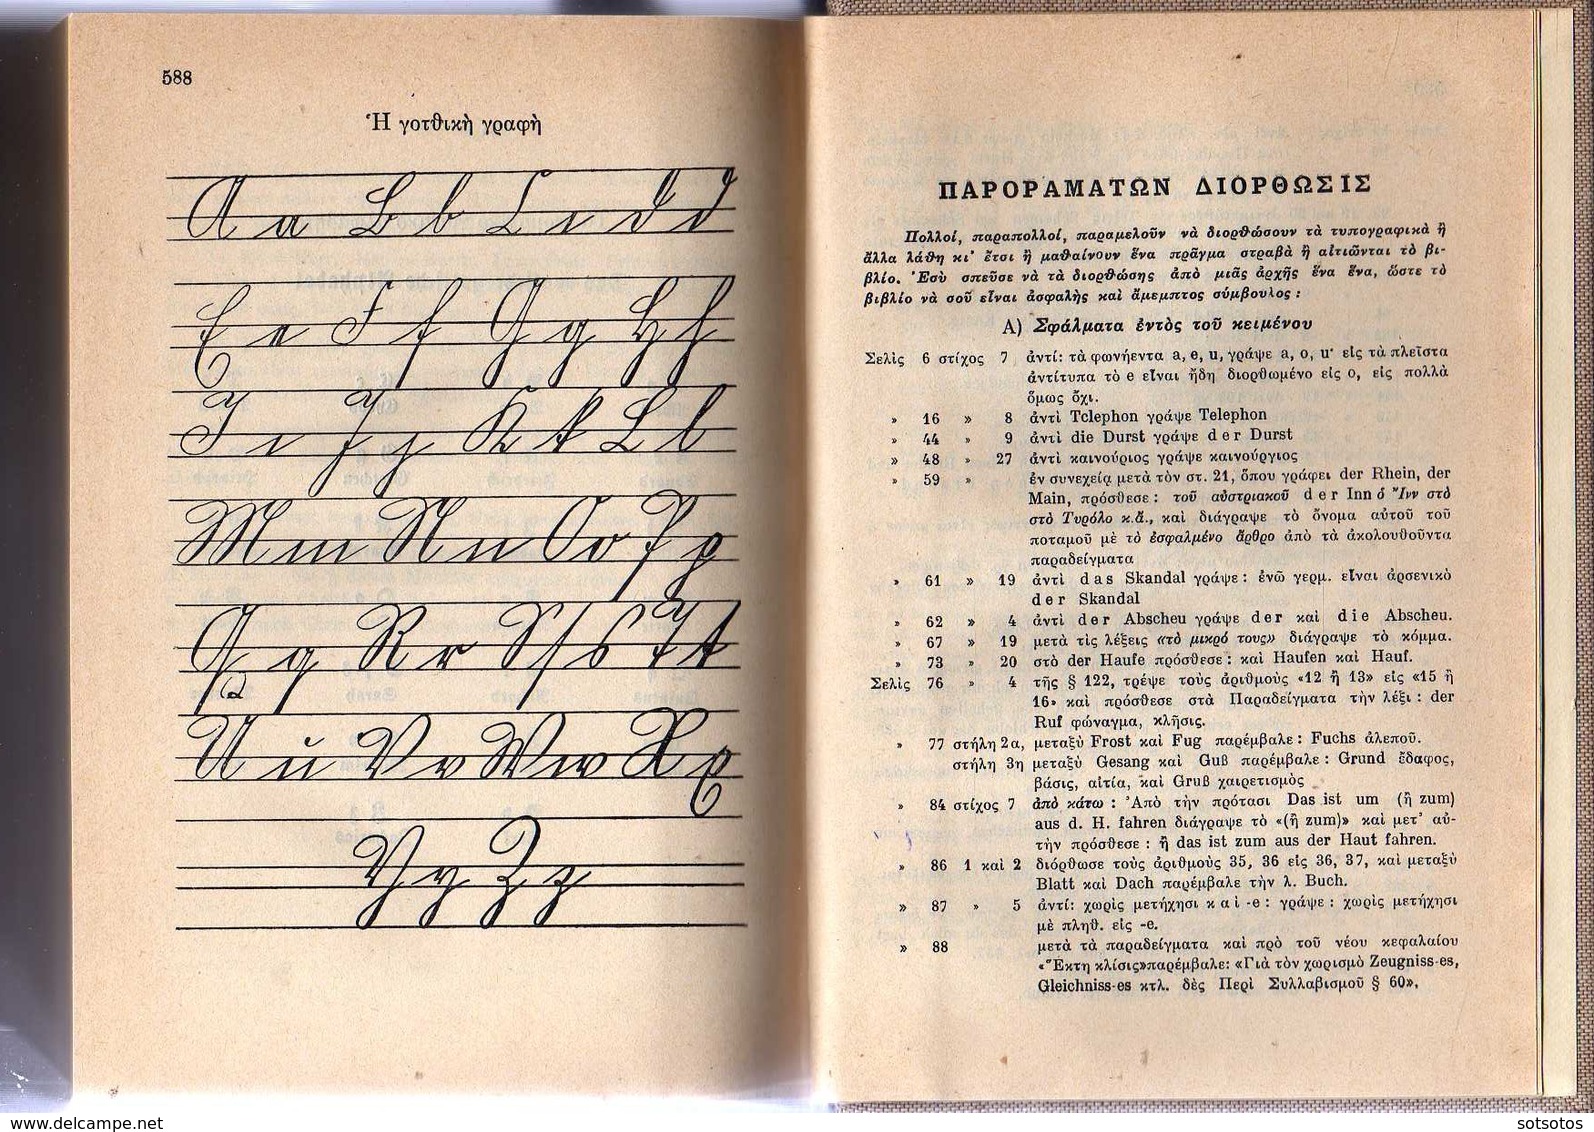 588
Ἡ γοτθικὴ γραφὴ
A a B b C c d d
E e F f G g H h
I i J j K k L l
M m N n O o P p
Q q R r S ſ s T t
U u V v W w X x
Y y Z z
ΠΑΡΟΡΑΜΑΤΩΝ ΔΙΟΡΘΩΣΙΣ
Πολλοί, παραπολλοί, παραμελοῦν νὰ διορθώσουν τὰ τυπογραφικὰ ἢ
ἄλλα λάθη κι' ἔτσι ἢ μαθαίνουν ἕνα πρᾶγμα στραβὰ ἢ αἰτιῶνται τὸ βι-
βλίο. Ἐσὺ σπεῦσε νὰ τὰ διορθώσῃς ἀπὸ μιᾶς ἀρχῆς ἕνα ἕνα, ὥστε τὸ
βιβλίο νὰ σοῦ εἶναι ἀσφαλὴς καὶ ἄμεμπτος σύμβουλος :
Α) Σφάλματα ἐντὸς τοῦ κειμένου
Σελὶς 6 στίχος 7 ἀντί: τὰ φωνήεντα a, e, u, γράψε a, o, u· εἰς τὰ πλεῖστα
ἀντίτυπα τὸ e εἶναι ἤδη διορθωμένο εἰς o, εἰς πολλὰ
ὅμως ὄχι.
» 16 » 8 ἀντὶ Tclephon γράψε Telephon
» 44 » 9 ἀντὶ die Durst γράψε der Durst
» 48 » 27 ἀντὶ καινούριος γράψε καινούργιος
» 59 » ἐν συνεχείᾳ μετὰ τὸν στ. 21, ὅπου γράφει der Rhein, der
Main, πρόσθεσε : τοῦ αὐστριακοῦ der Inn ὁ Ἴνν στὸ
στὸ Τυρόλο κ.ἄ., καὶ διάγραψε τὸ ὄνομα αὐτοῦ τοῦ
ποταμοῦ μὲ τὸ ἐσφαλμένο ἄρθρο ἀπὸ τὰ ἀκολουθοῦντα
παραδείγματα
» 61 » 19 ἀντὶ das Skandal γράψε : ἐνῶ γερμ. εἶναι ἀρσενικὸ
der Skandal
» 62 » 4 ἀντὶ der Abscheu γράψε der καὶ die Abscheu.
» 67 » 19 μετὰ τὶς λέξεις «τὸ μικρό τους» διάγραψε τὸ κόμμα.
» 73 » 20 στὸ der Haufe πρόσθεσε : καὶ Haufen καὶ Hauf.
Σελὶς 76 » 4 τῆς § 122, τρέψε τοὺς ἀριθμοὺς «12 ἢ 13» εἰς «15 ἢ
16» καὶ πρόσθεσε στὰ Παραδείγματα τὴν λέξι : der
Ruf φώναγμα, κλῆσις.
» 77 στήλη 2α, μεταξὺ Frost καὶ Fug παρέμβαλε : Fuchs ἀλεποῦ.
στήλη 3η μεταξὺ Gesang καὶ Guß παρέμβαλε : Grund ἔδαφος,
βάσις, αἰτία, καὶ Gruß χαιρετισμὸς
» 84 στίχος 7 ἀπὸ κάτω : Ἀπὸ τὴν πρότασι Das ist um (ἢ zum)
aus d. H. fahren διάγραψε τὸ «(ἢ zum)» καὶ μετ' αὐ-
τὴν πρόσθεσε : ἢ das ist zum aus der Haut fahren.
» 86 1 καὶ 2 διόρθωσε τοὺς ἀριθμοὺς 35, 36 εἰς 36, 37, καὶ μεταξὺ
Blatt καὶ Dach παρέμβαλε τὴν λ. Buch.
» 87 » 5 ἀντί: χωρὶς μετήχησι καὶ -e : γράψε : χωρὶς μετήχησι
μὲ πληθ. εἰς -e.
» 88 μετὰ τὰ παραδείγματα καὶ πρὸ τοῦ νέου κεφαλαίου
«Ἕκτη κλίσις» παρέμβαλε: «Γιὰ τὸν χωρισμὸ Zeugniss-es,
Gleichniss-es κτλ. δὲς Περὶ Συλλαβισμοῦ § 60».
www.delcampe.net
sotsotos